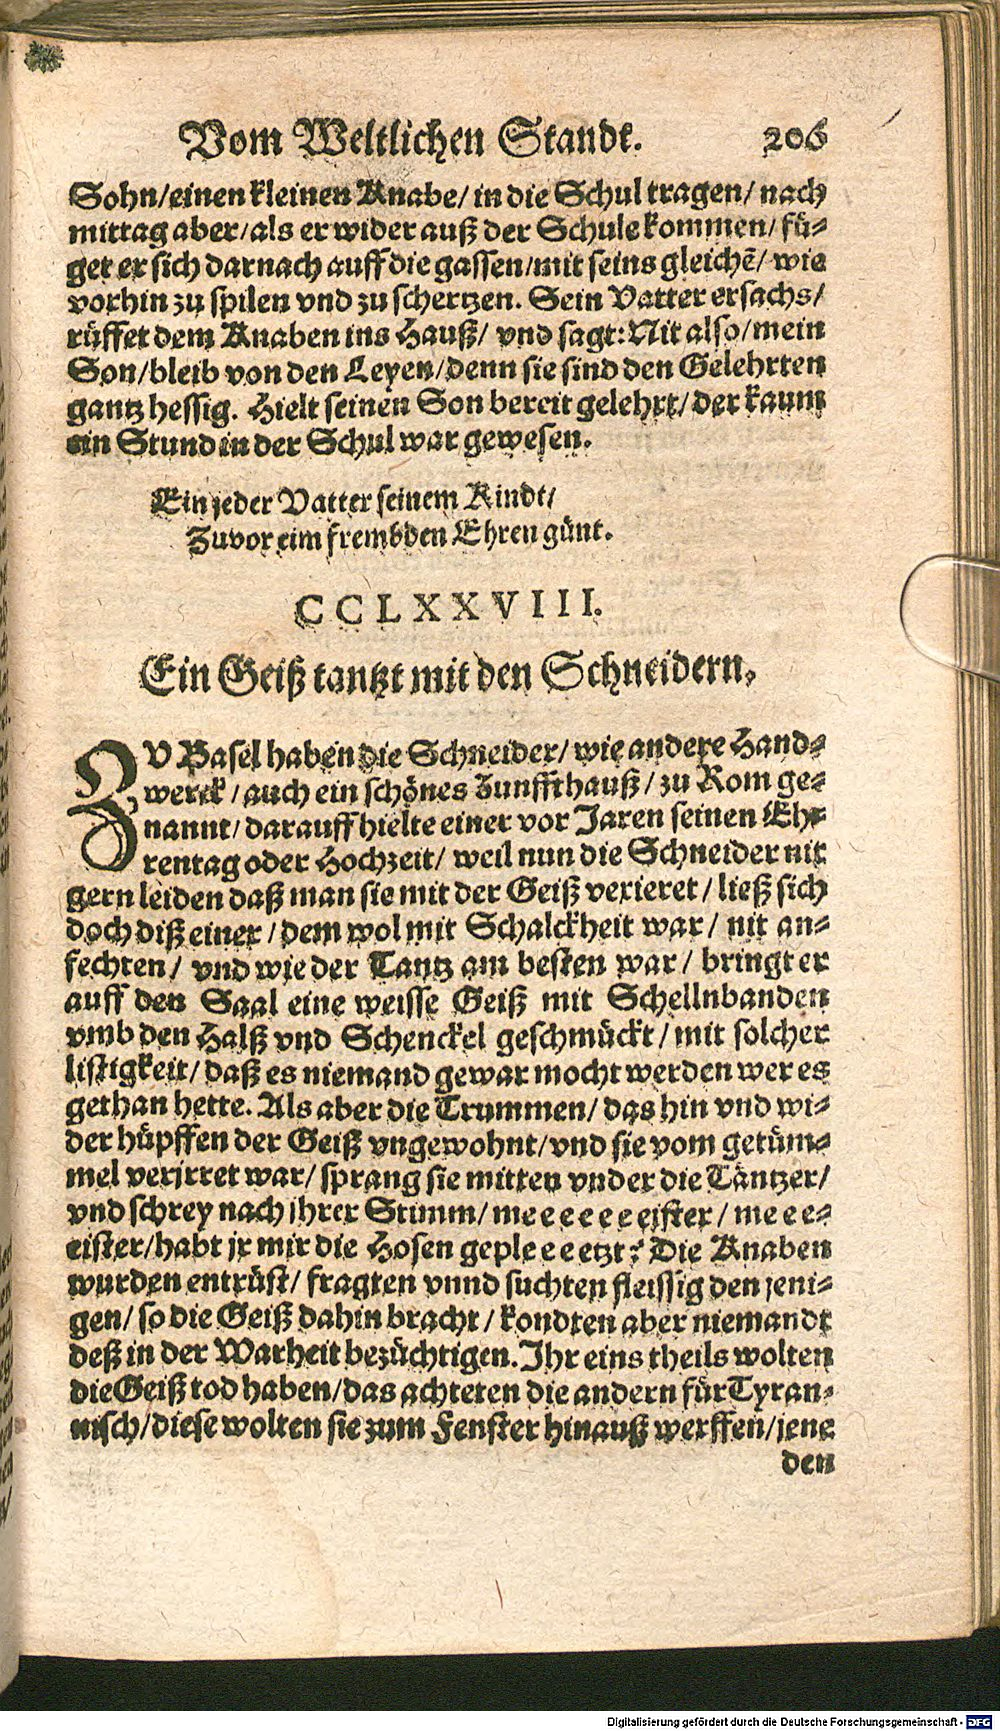 Vom Weltlichen Standt. 206
Sohn/einen kleinen Knabe/ in die Schul tragen/ nach
mittag aber/als er wider auß der Schule kommen/ fü-
get er sich darnach auff die gassen/mit seins gleichẽ/ wie
vorhin zu spilen vnd zu schertzen. Sein Vatter ersachs/
rüffet dem Knaben ins Hauß/ vnd sagt: Nit also/mein
Son/bleib von den Leyen/denn sie sind den Gelehrten
gantz hessig. Hielt seinen Son bereit gelehrt/ der kaum
ein Stund in der Schul war gewesen.
Ein jeder Vatter seinem Kindt/
Zuvor eim frembden Ehren günt.
CCLXXVIII.
Ein Geiß tantzt mit den Schneidern.
ZV Basel haben die Schneider/ wie andere Hand-
werck / auch ein schönes Zunffthauß / zu Rom ge-
nannt/ darauff hielte einer vor Jaren seinen Eh-
rentag oder Hochzeit/ weil nun die Schneider nit
gern leiden daß man sie mit der Geiß vexieret / ließ sich
doch diß einer / dem wol mit Schalckheit war / nit an-
fechten / vnd wie der Tantz am besten war / bringt er
auff den Saal eine weisse Geiß mit Schellnbanden
vmb den Halß vnd Schenckel geschmückt / mit solcher
listigkeit/ daß es niemand gewar mocht werden wer es
gethan hette. Als aber die Trummen/ das hin vnd wi-
der hüpffen der Geiß vngewohnt/vnd sie vom getüm-
mel verjrret war/ sprang sie mitten vnder die Täntzer/
vnd schrey nach jhrer Stimm/ me e e e e e eister / me e e-
eister/habt jr mir die Hosen geple e e etzt? Die Knaben
wurden entrüst/ fragten vnnd suchten fleissig den jeni-
gen/ so die Geiß dahin bracht / kondten aber niemandt
deß in der Warheit bezüchtigen. Ihr eins theils wolten
die Geiß tod haben/das achteten die andern für Tyran-
nisch/diese wolten sie zum Fenster hinauß werffen/jene
den
Digitalisierung gefördert durch die Deutsche Forschungsgemeinschaft - DFG